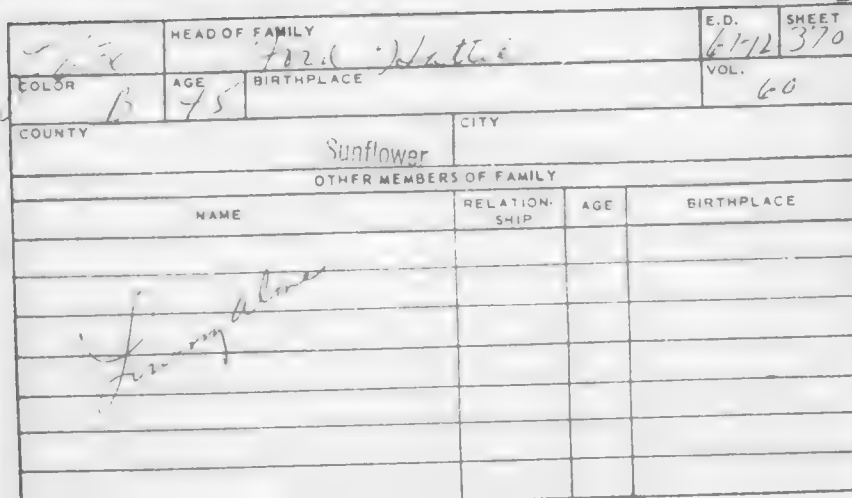 HEAD OF FAMILY
Ford Hattie
E.D.
67-12
SHEET
370
COLOR
B
AGE
45
BIRTHPLACE
VOL.
60
COUNTY
Sunflower
CITY
OTHER MEMBERS OF FAMILY
NAME
RELATION-
SHIP
AGE
BIRTHPLACE
alone